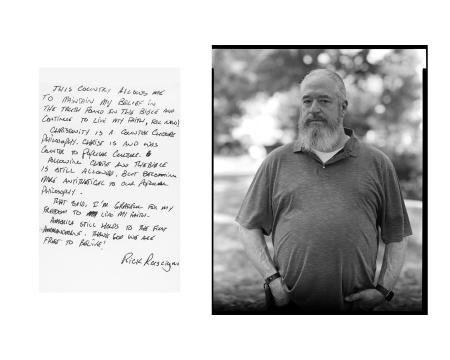 THIS COUNTRY ALLOWS ME
TO MAINTAIN MY BELIEF IN
THE TRUTH FOUND IN THE BIBLE AND
CONTINUE TO LIVE MY FAITH, (FOR NOW)
CHRISTIANITY IS A COUNTER CULTURE
PHILOSOPHY. CHRIST IS AND WAS
COUNTER TO POPULAR CULTURE.
ALLOWING CHRIST AND THE BIBLE
IS STILL ALLOWED, BUT BECOMING
MORE ANTITHETICAL TO OUR POPULAR
PHILOSOPHY.
THAT SAID, I'M GRATEFUL FOR MY
FREEDOM TO LIVE MY FAITH.
AMERICA STILL HOLDS TO THE FIRST
AMMENDMENT. THANK GOD WE ARE
FREE TO BELIEVE!
Rick